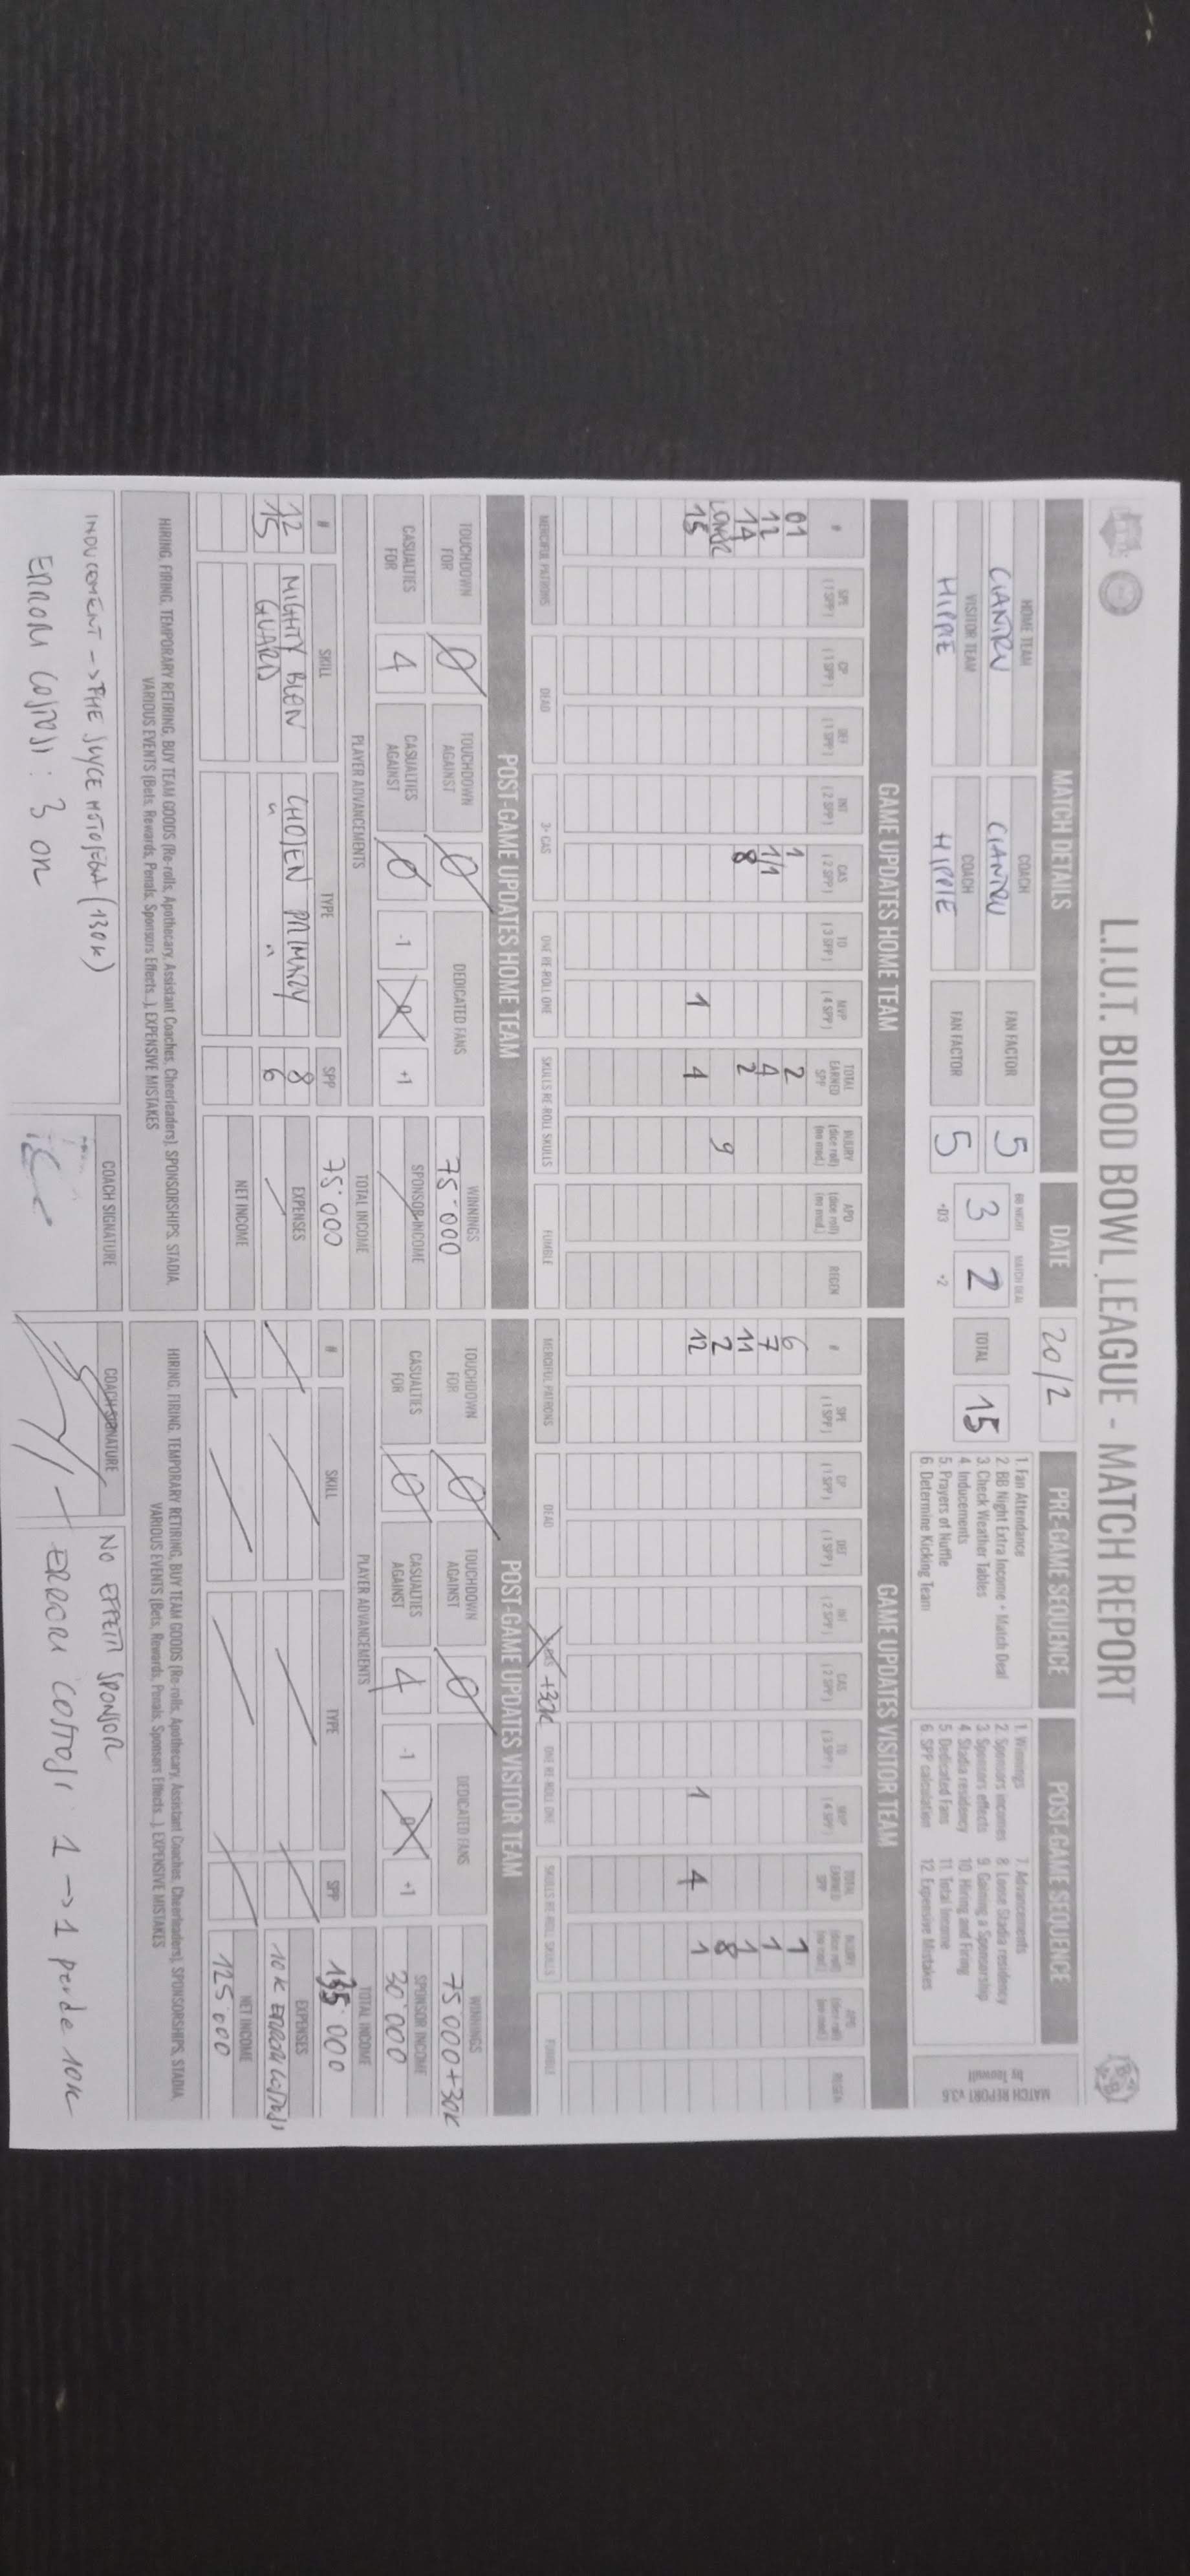 L.I.U.T. BLOOD BOWL LEAGUE - MATCH REPORT
MATCH DETAILS
DATE
20/2
PRE-GAME SEQUENCE
POST-GAME SEQUENCE
MATCH REPORT
HOME TEAM
COACH
FAN FACTOR
5
BB NIGHT
MATCH DEAL
CIANTRU
CIANTRU
3
2
TOTAL
15
VISITOR TEAM
COACH
FAN FACTOR
5
+D3
+2
HIPPIE
HIPPIE
1 Fan Attendance
2 BB Night Extra Income + Match Deal
3 Check Weather Tables
4 Inducements
5 Prayers of Nuffle
6 Determine Kicking Team
1. Winnings
2 Sponsors incomes
3 Sponsors effects
4 Stadia residency
5 Dedicated Fans
6 SPP calculation
7. Advancements
8 Loose Stadia residency
9 Gaining a Sponsorship
10 Hiring and Firing
11 Total Income
12 Expensive Mistakes
GAME UPDATES HOME TEAM
# SPE (1 SPP) CP (1 SPP) DEF (1 SPP) INT (2 SPP) CAS (2 SPP) TD (3 SPP) MVP (4 SPP) TOTAL EARNED SPP INJURY (dice roll) (no mod.) APO (dice roll) (no mod.) REGEN
01 1 2
12 1/1 4
14 2
9
15 1 4
MERCIFUL PATRONS DEAD 3+ CAS ONE RE-ROLL ONE SKULLS RE-ROLL SKULLS FUMBLE
GAME UPDATES VISITOR TEAM
# SPE (1 SPP) CP (1 SPP) DEF (1 SPP) INT (2 SPP) CAS (2 SPP) TD (3 SPP) MVP (4 SPP) TOTAL EARNED SPP INJURY (dice roll) (no mod.) APO (dice roll) (no mod.) REGEN
6 1
7 1
11 1
2 8
12 1 4 1
MERCIFUL PATRONS DEAD +30K ONE RE-ROLL ONE SKULLS RE-ROLL SKULLS FUMBLE
POST-GAME UPDATES HOME TEAM
TOUCHDOWN FOR 0 TOUCHDOWN AGAINST 0 DEDICATED FANS WINNINGS 75.000
CASUALTIES FOR 4 CASUALTIES AGAINST 0 -1 +1 SPONSOR INCOME
PLAYER ADVANCEMENTS TOTAL INCOME
# SKILL TYPE SPP 75.000
12 MIGHTY BLOW CHOSEN PRIMARY 8 EXPENSES
15 GUARD " " 6
NET INCOME
HIRING, FIRING, TEMPORARY RETIRING, BUY TEAM GOODS (Re-rolls, Apothecary, Assistant Coaches, Cheerleaders), SPONSORSHIPS, STADIA,
VARIOUS EVENTS (Bets, Rewards, Penals, Sponsors Effects...), EXPENSIVE MISTAKES
COACH SIGNATURE
(130K)
ERRORI COSTOSI : 3 OK
POST-GAME UPDATES VISITOR TEAM
TOUCHDOWN FOR 0 TOUCHDOWN AGAINST 0 DEDICATED FANS WINNINGS 75.000+30K
CASUALTIES FOR 0 CASUALTIES AGAINST 4 -1 +1 SPONSOR INCOME 30.000
PLAYER ADVANCEMENTS TOTAL INCOME
# SKILL TYPE SPP 135.000
EXPENSES
10K ERRORI COSTOSI
NET INCOME
125.000
HIRING, FIRING, TEMPORARY RETIRING, BUY TEAM GOODS (Re-rolls, Apothecary, Assistant Coaches, Cheerleaders), SPONSORSHIPS, STADIA,
VARIOUS EVENTS (Bets, Rewards, Penals, Sponsors Effects...), EXPENSIVE MISTAKES
COACH SIGNATURE
NO EFFETTI SPONSOR
ERRORI COSTOSI 1 -> 1 perde 10K